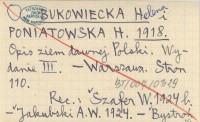 BUKOWIECKA Helena i
PONIATOWSKA H. 1918.
Opis ziem dawnej Polski. Wy-
danie III. – Warszawa. Stron
110.
Rec.: "Szafer W. 1924 b.
"Jakubski A.W. 1924. – "Bystroń